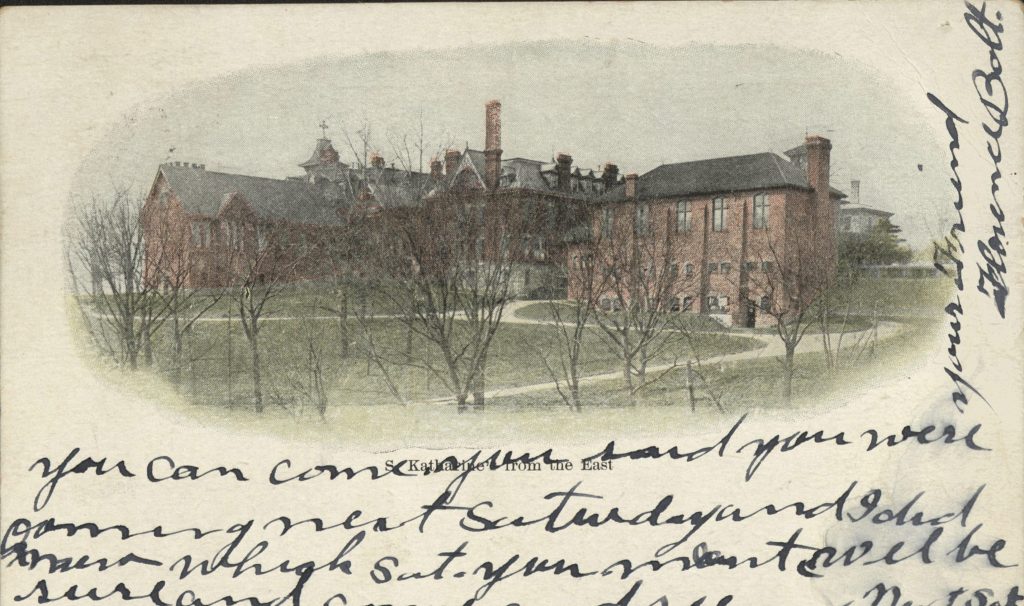 S. Katharine's from the East
you can come. you said you were
coming next Saturday and I did
which Sat. you ment will be
sure and Next Sat
your Friend
Florence Bolt.